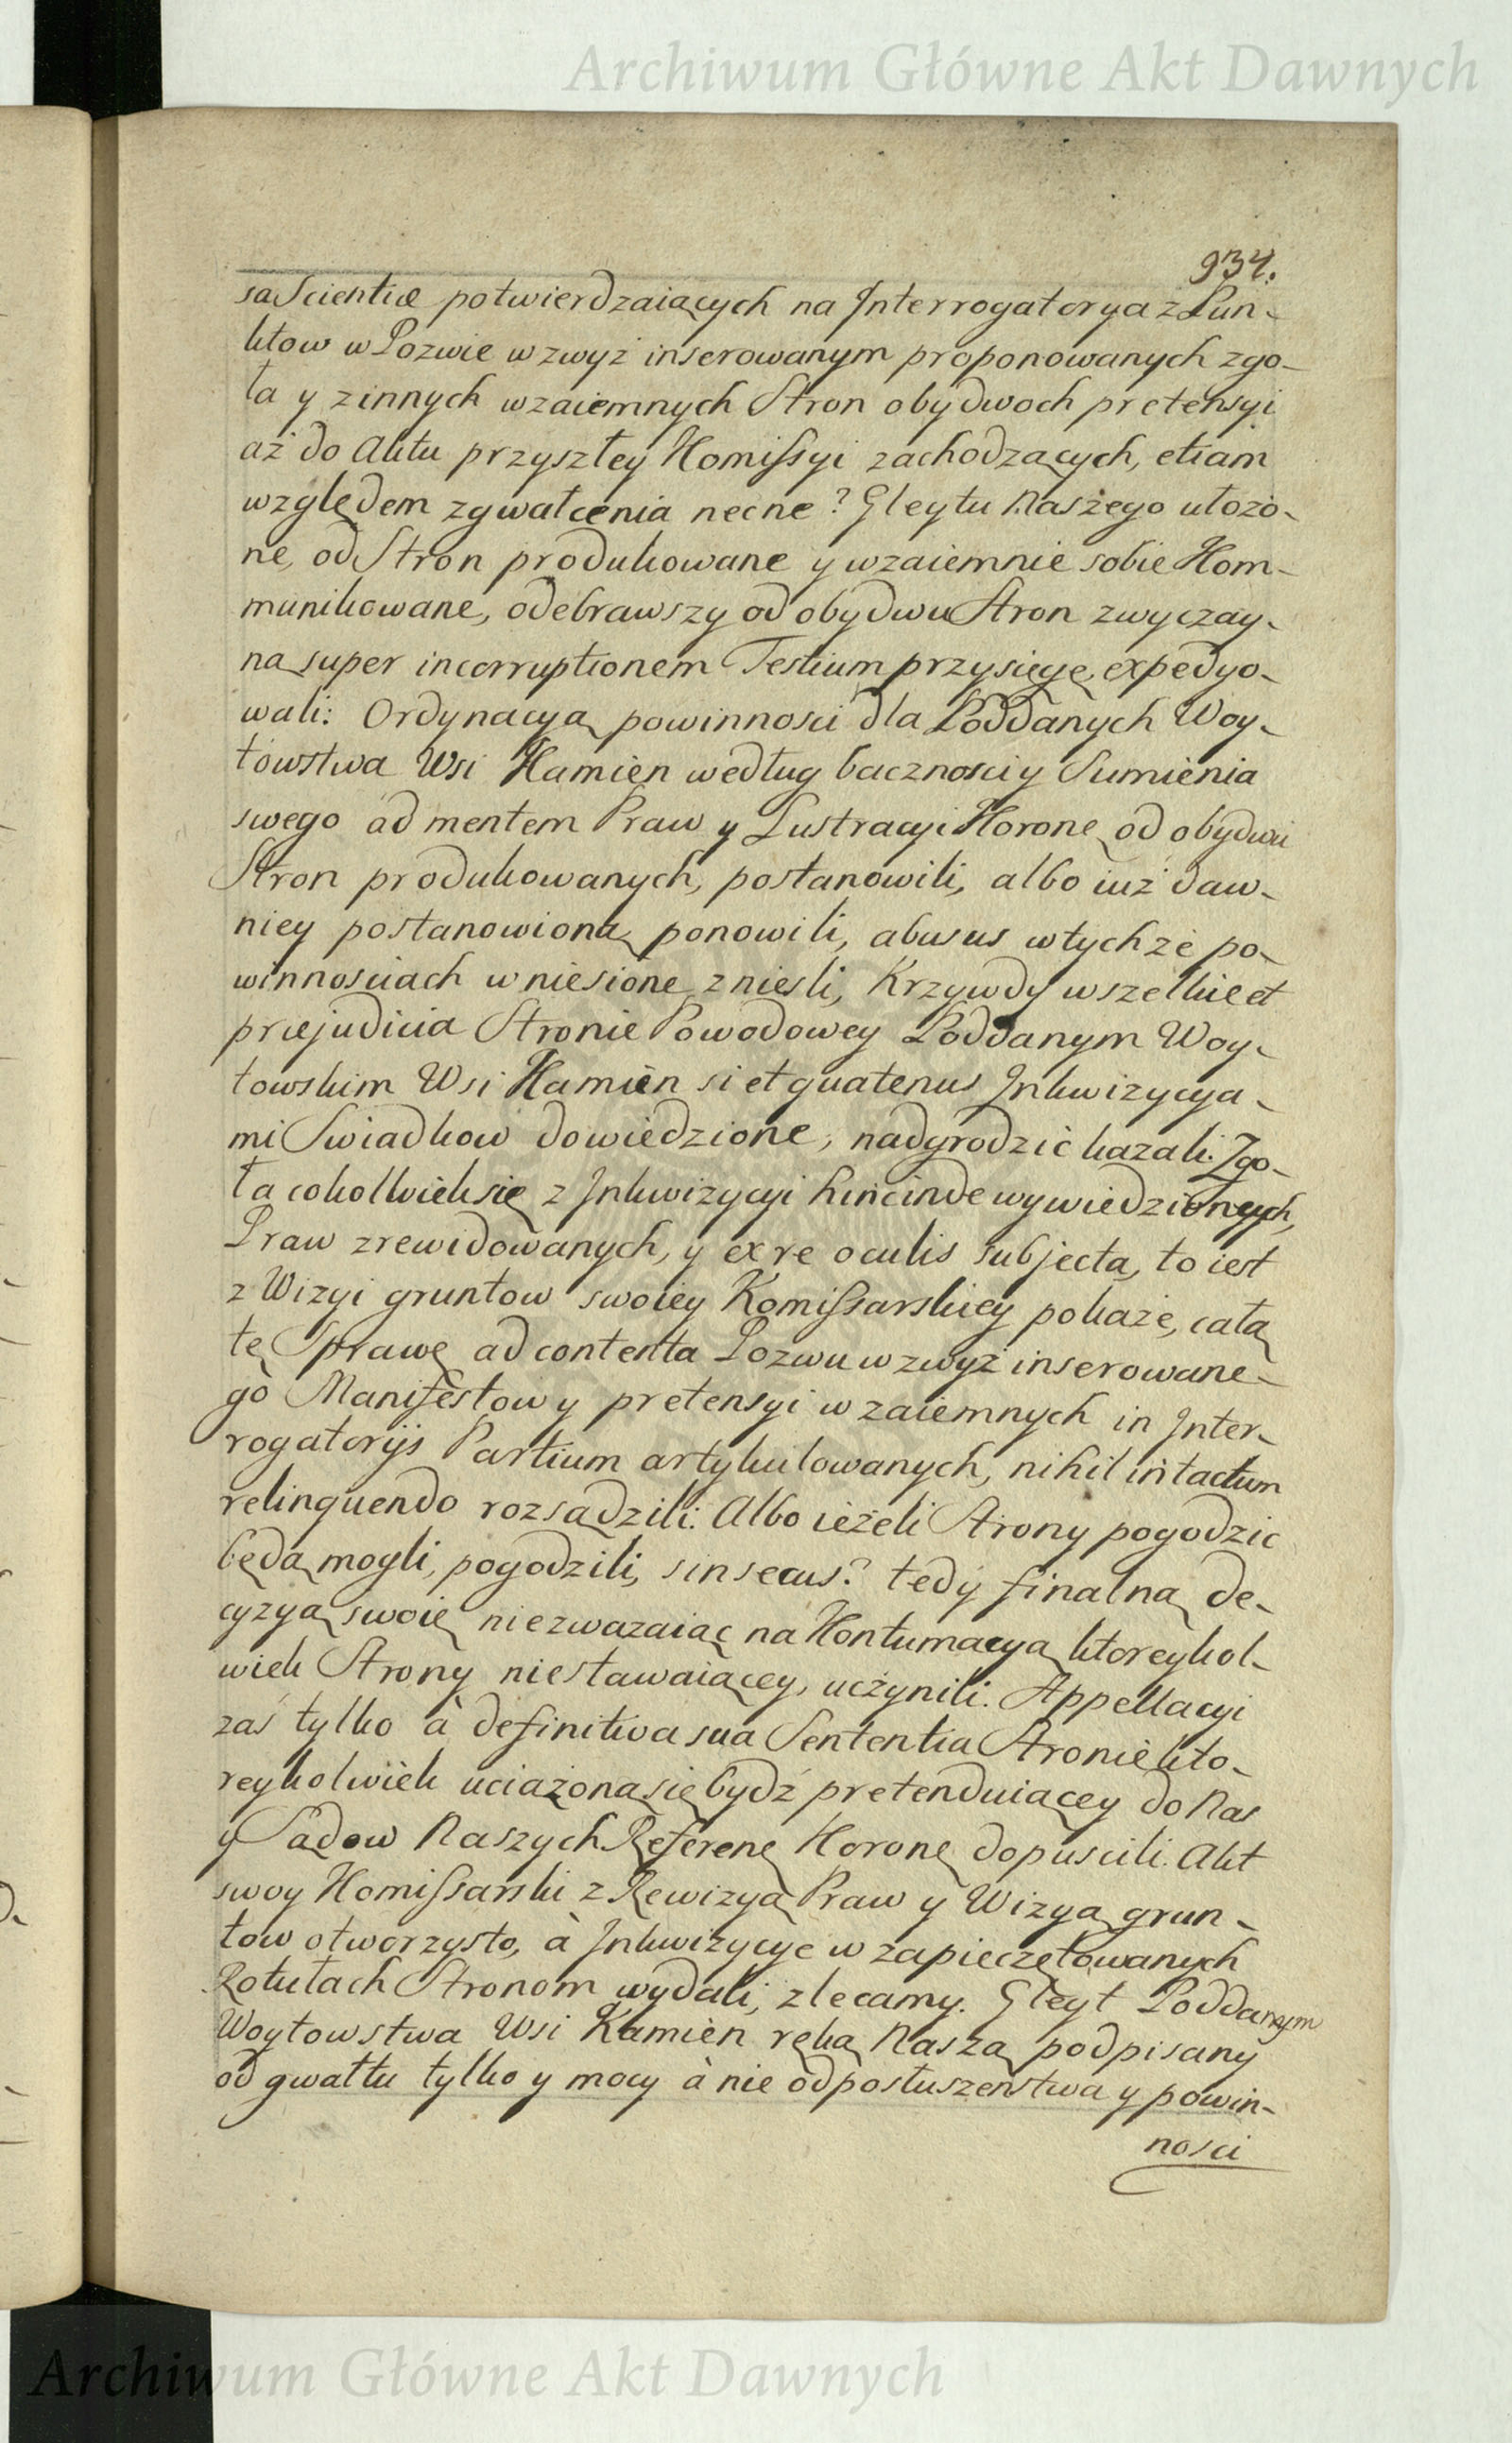 Archiwum Główne Akt Dawnych
934.
sa Scientiæ potwierdzaiących na Interrogatorya z Pun-
ktow w Pozwie wzwyż inserowanym proponowanych zgo-
ła y z innych wzaiemnych Stron obydwoch pretensyi
aż do Aktu przyszłey Kommissyi zachodzących, etiam
względem zgwałcenia necne? Gleytu Naszego ułożo-
ne, od Stron produkowane y wzaiemnie sobie Kom-
munikowane, odebrawszy od obydwu Stron zwyczay-
ną super incorruptionem Testium przysięgę, expedyo-
wali: Ordynacyą powinnosci dla Poddanych Woy-
towstwa Wsi Kamień według bacznosci y Sumienia
swego ad mentem Praw y Lustracyi Koronę od obydwu
Stron produkowanych, postanowili, albo iuż daw-
niey postanowioną ponowili, abusus w tychże po-
winnosciach wniesione zniesli, Krzywdy wszelkie et
præjudicia Stronie Powodowey Poddanym Woy-
towskim Wsi Kamień si et quatenus Inkwizycya-
mi Swiadkow dowiedzione, nadgrodzić kazali. Zgo-
ła cokolwiek się z Inkwizycyi hincinde wywiedzionych,
Praw zrewidowanych, y ex re oculis subjecta, to iest
z Wizyi gruntow swoiey Komissarskiey pokaże, całą
tę Sprawę ad contenta Pozwu wzwyż inserowane-
go Manifestow y pretensyi wzaiemnych in Inter-
rogatorijs Partium artykułowanych, nihil intactum
relinquendo rozsądzili. Albo ieżeli Strony pogodzic
będą mogli, pogodzili, sin secus? tedy finalną de-
cyzyą swoię nie zwazaiąc na Kontumacyą ktoreykol-
wiek Strony niestawaiącey, uczynili. Appellacyi
zaś tylko à definitiva sua Sententia Stronie kto-
reykolwiek uciążoną się bydź pretenduiącey do Nas
y Sądow Naszych Referenę Koronę dopuscili. Akt
swoy Komissarski z Rewizyą Praw y Wizyą grun-
tow otworzysto, à Inkwizycye w zapieczętowanych
Rotułach Stronom wydali, zlecamy. Gleyt Poddanym
Woytowstwa Wsi Kamień ręką Naszą podpisany
od gwałtu tylko y mocy à nie od posłuszenstwa y powin-
nosci
Archiwum Główne Akt Dawnych